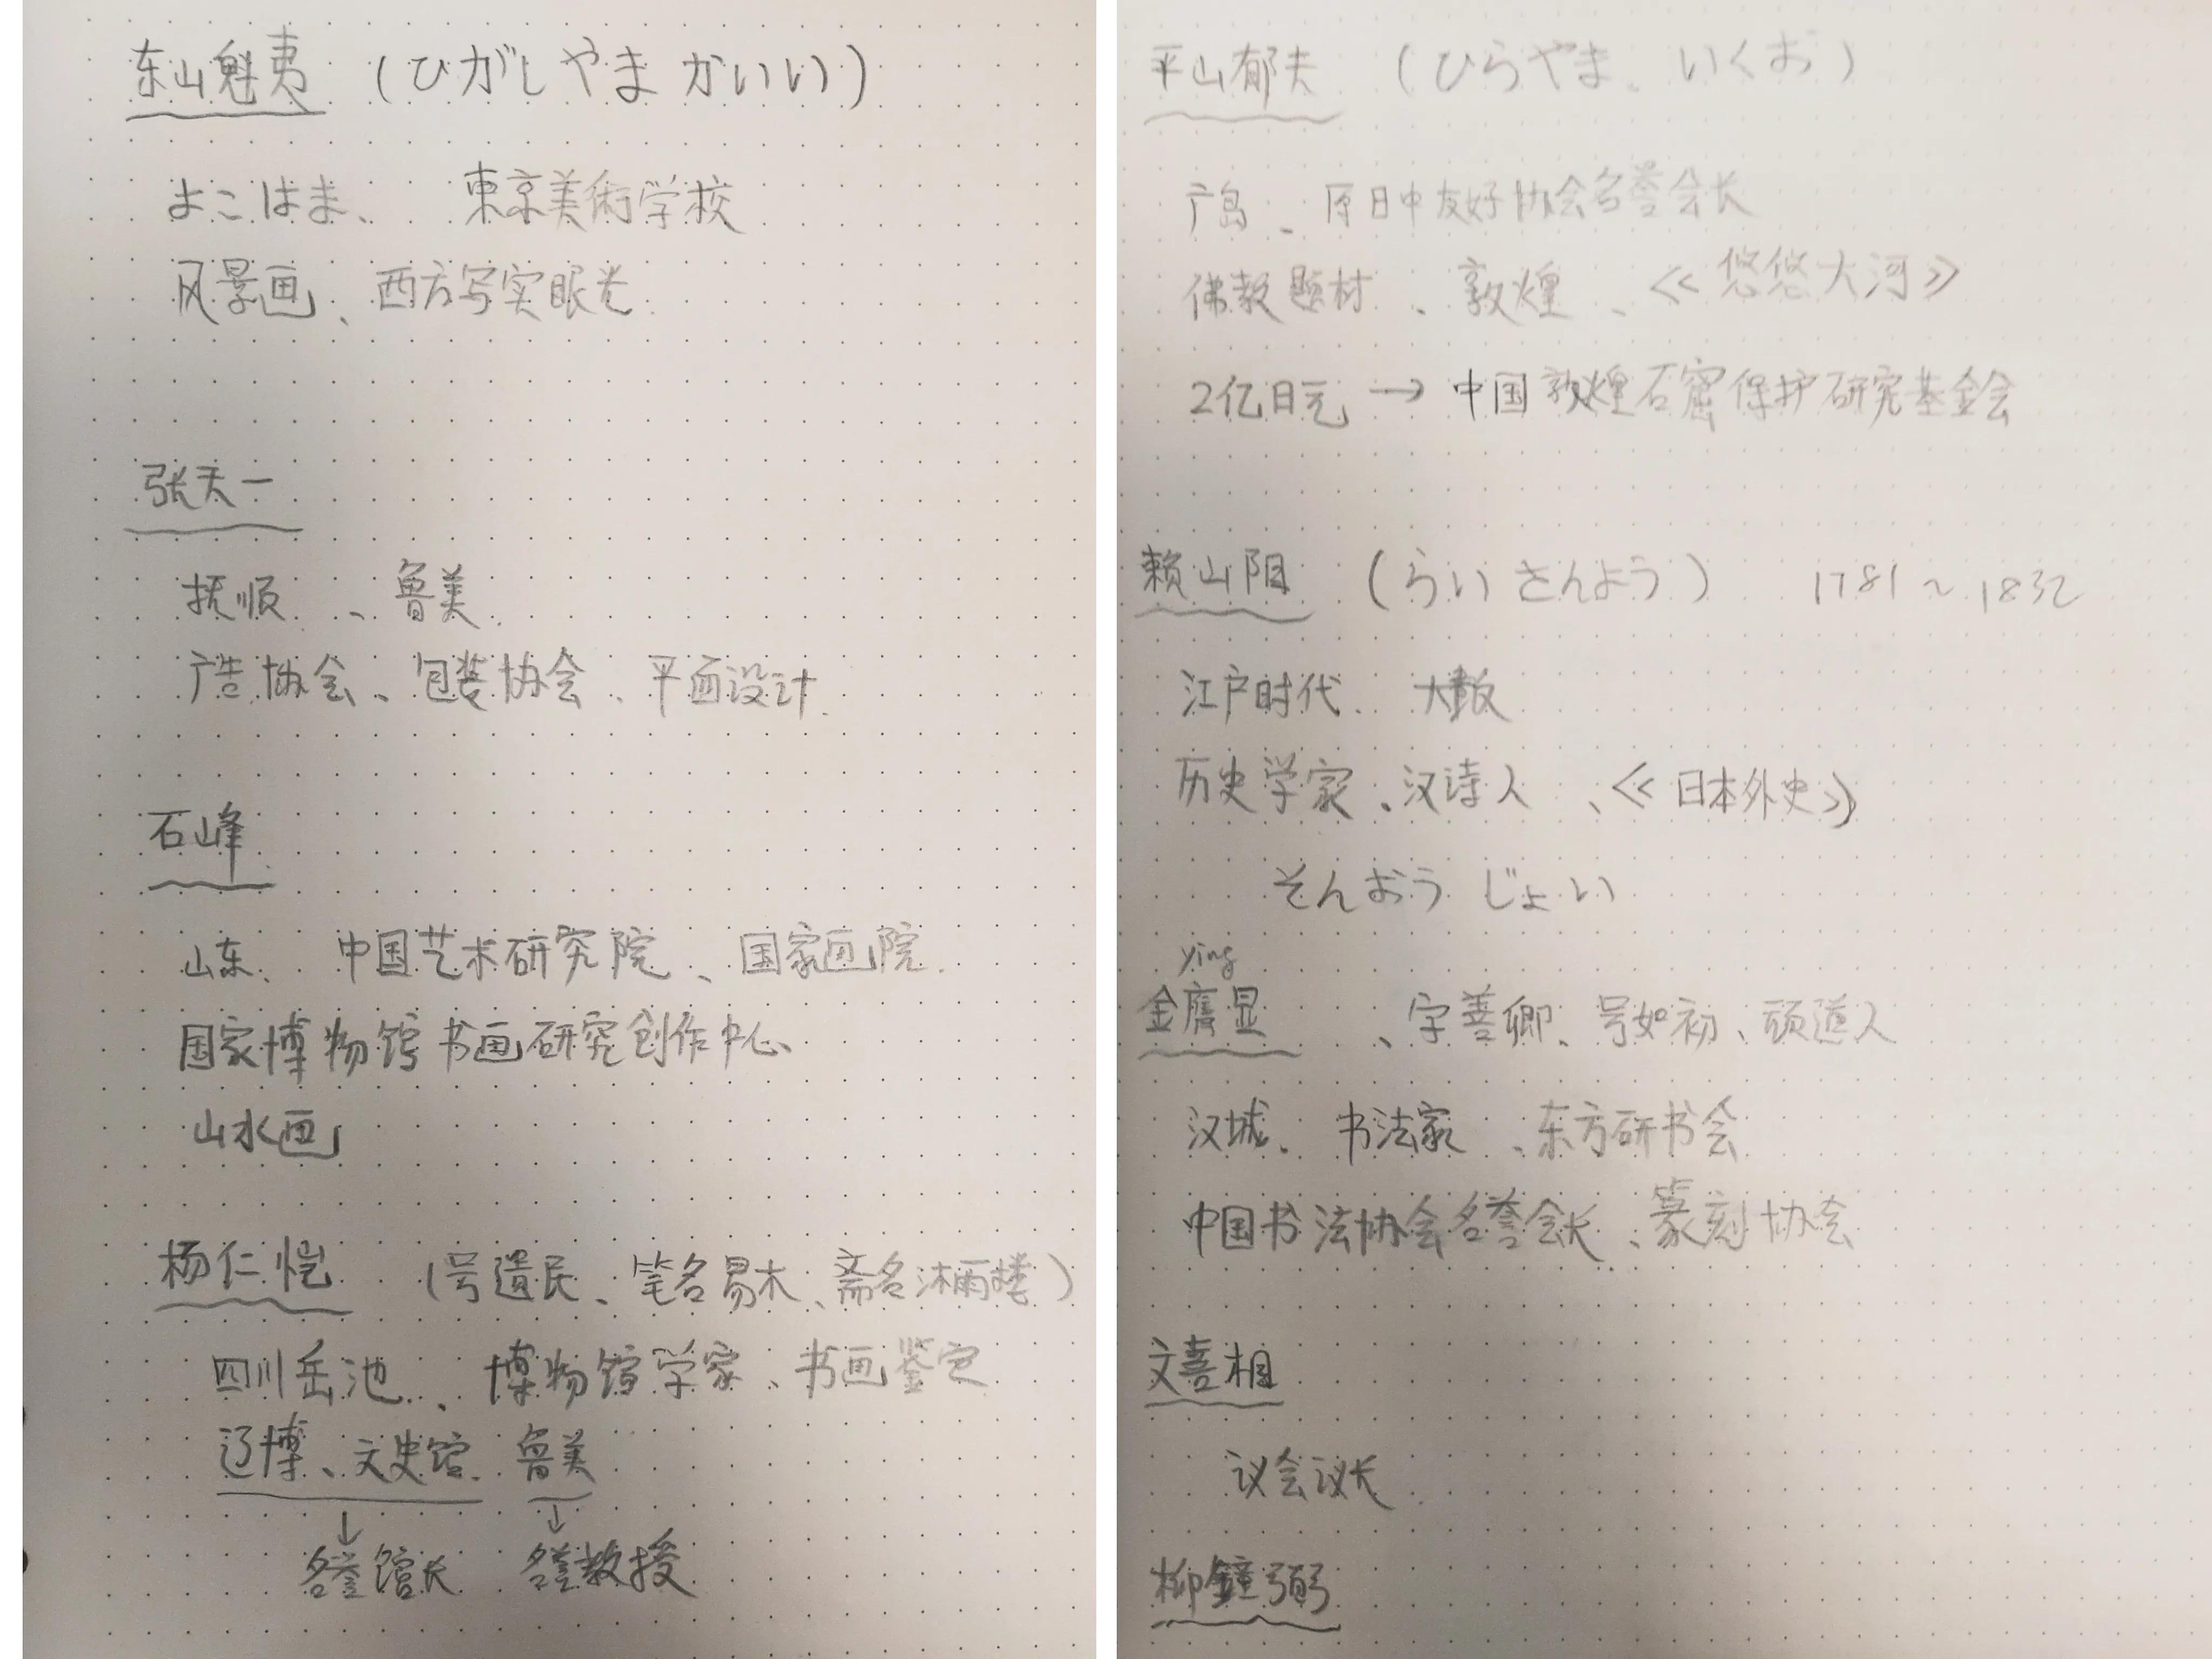 东山魁夷 (ひがしやま かいい)
よこはま、 東京美術学校
风景画、西方写实眼光
张天一
抚顺、鲁美
广告协会、包装协会、平面设计
石峰
山东、中国艺术研究院、国家画院
国家博物馆书画研究创作中心、
山水画
杨仁恺 (号遗民、笔名易木、斋名沐雨楼)
四川岳池、博物馆学家、书画鉴定
辽博、文史馆、鲁美
↓ ↓
名誉馆长 名誉教授
平山郁夫 (ひらやま、いくお)
广岛、原日中友好协会名誉会长
佛教题材、敦煌、《悠悠大河》
2亿日元 → 中国敦煌石窟保护研究基金会
赖山阳 (らい さんよう) 1781～1832
江户时代、大阪
历史学家、汉诗人、《日本外史》
そんおう じょい
ying
金膺显、字善卿、号如初、顽道人
汉城、书法家、东方研书会
中国书法协会名誉会长、篆刻协会
文喜相
议会议长
柳鐘弼